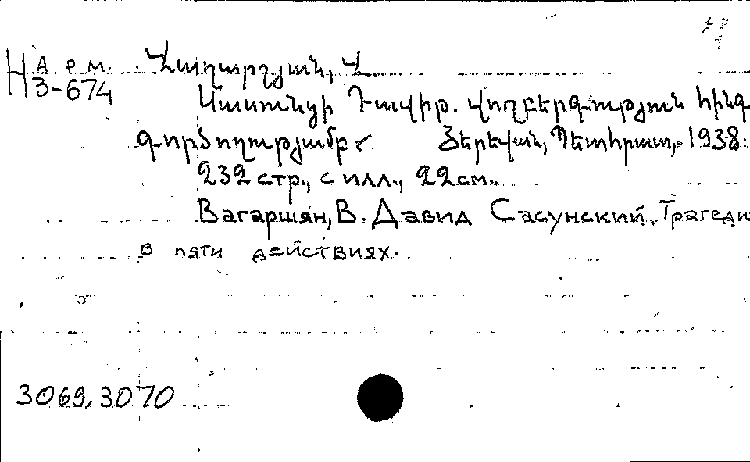 Н Арм. Վաղարշյան, Վ
3-674
Սասունցի Դավիթ. Վողբերգություն հինգ
գործողությամբ. Յերեվան, Պետհրատ, 1938.
232 стр., с илл., 22 см.
Вагаршян, В. Давид Сасунский. Трагеди
в пяти действиях.
3069, 3070